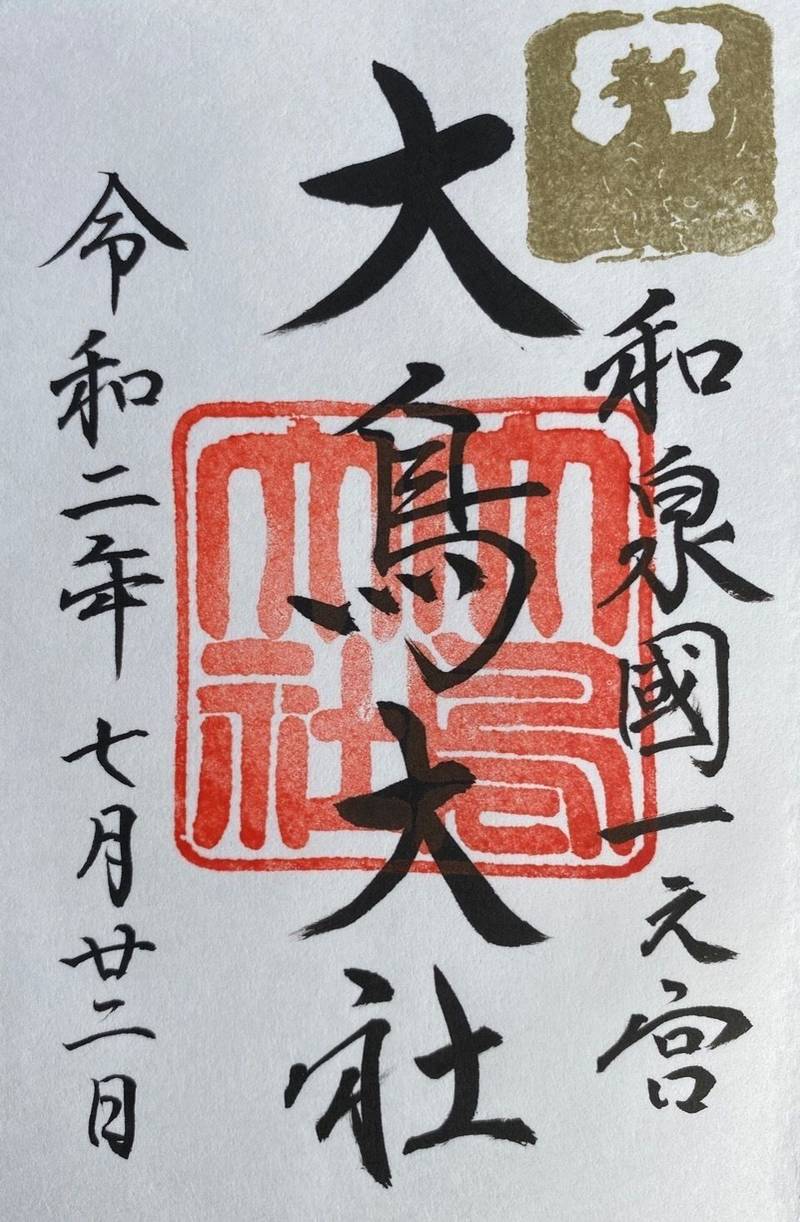 和泉國一之宮
大鳥大社
令和二年七月廿二日
大鳥大社